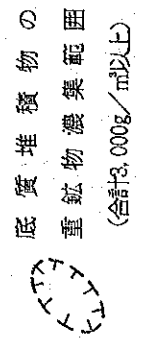 底質堆積物の
重鉱物濃集範囲
(合計3,000g/㎥以上)